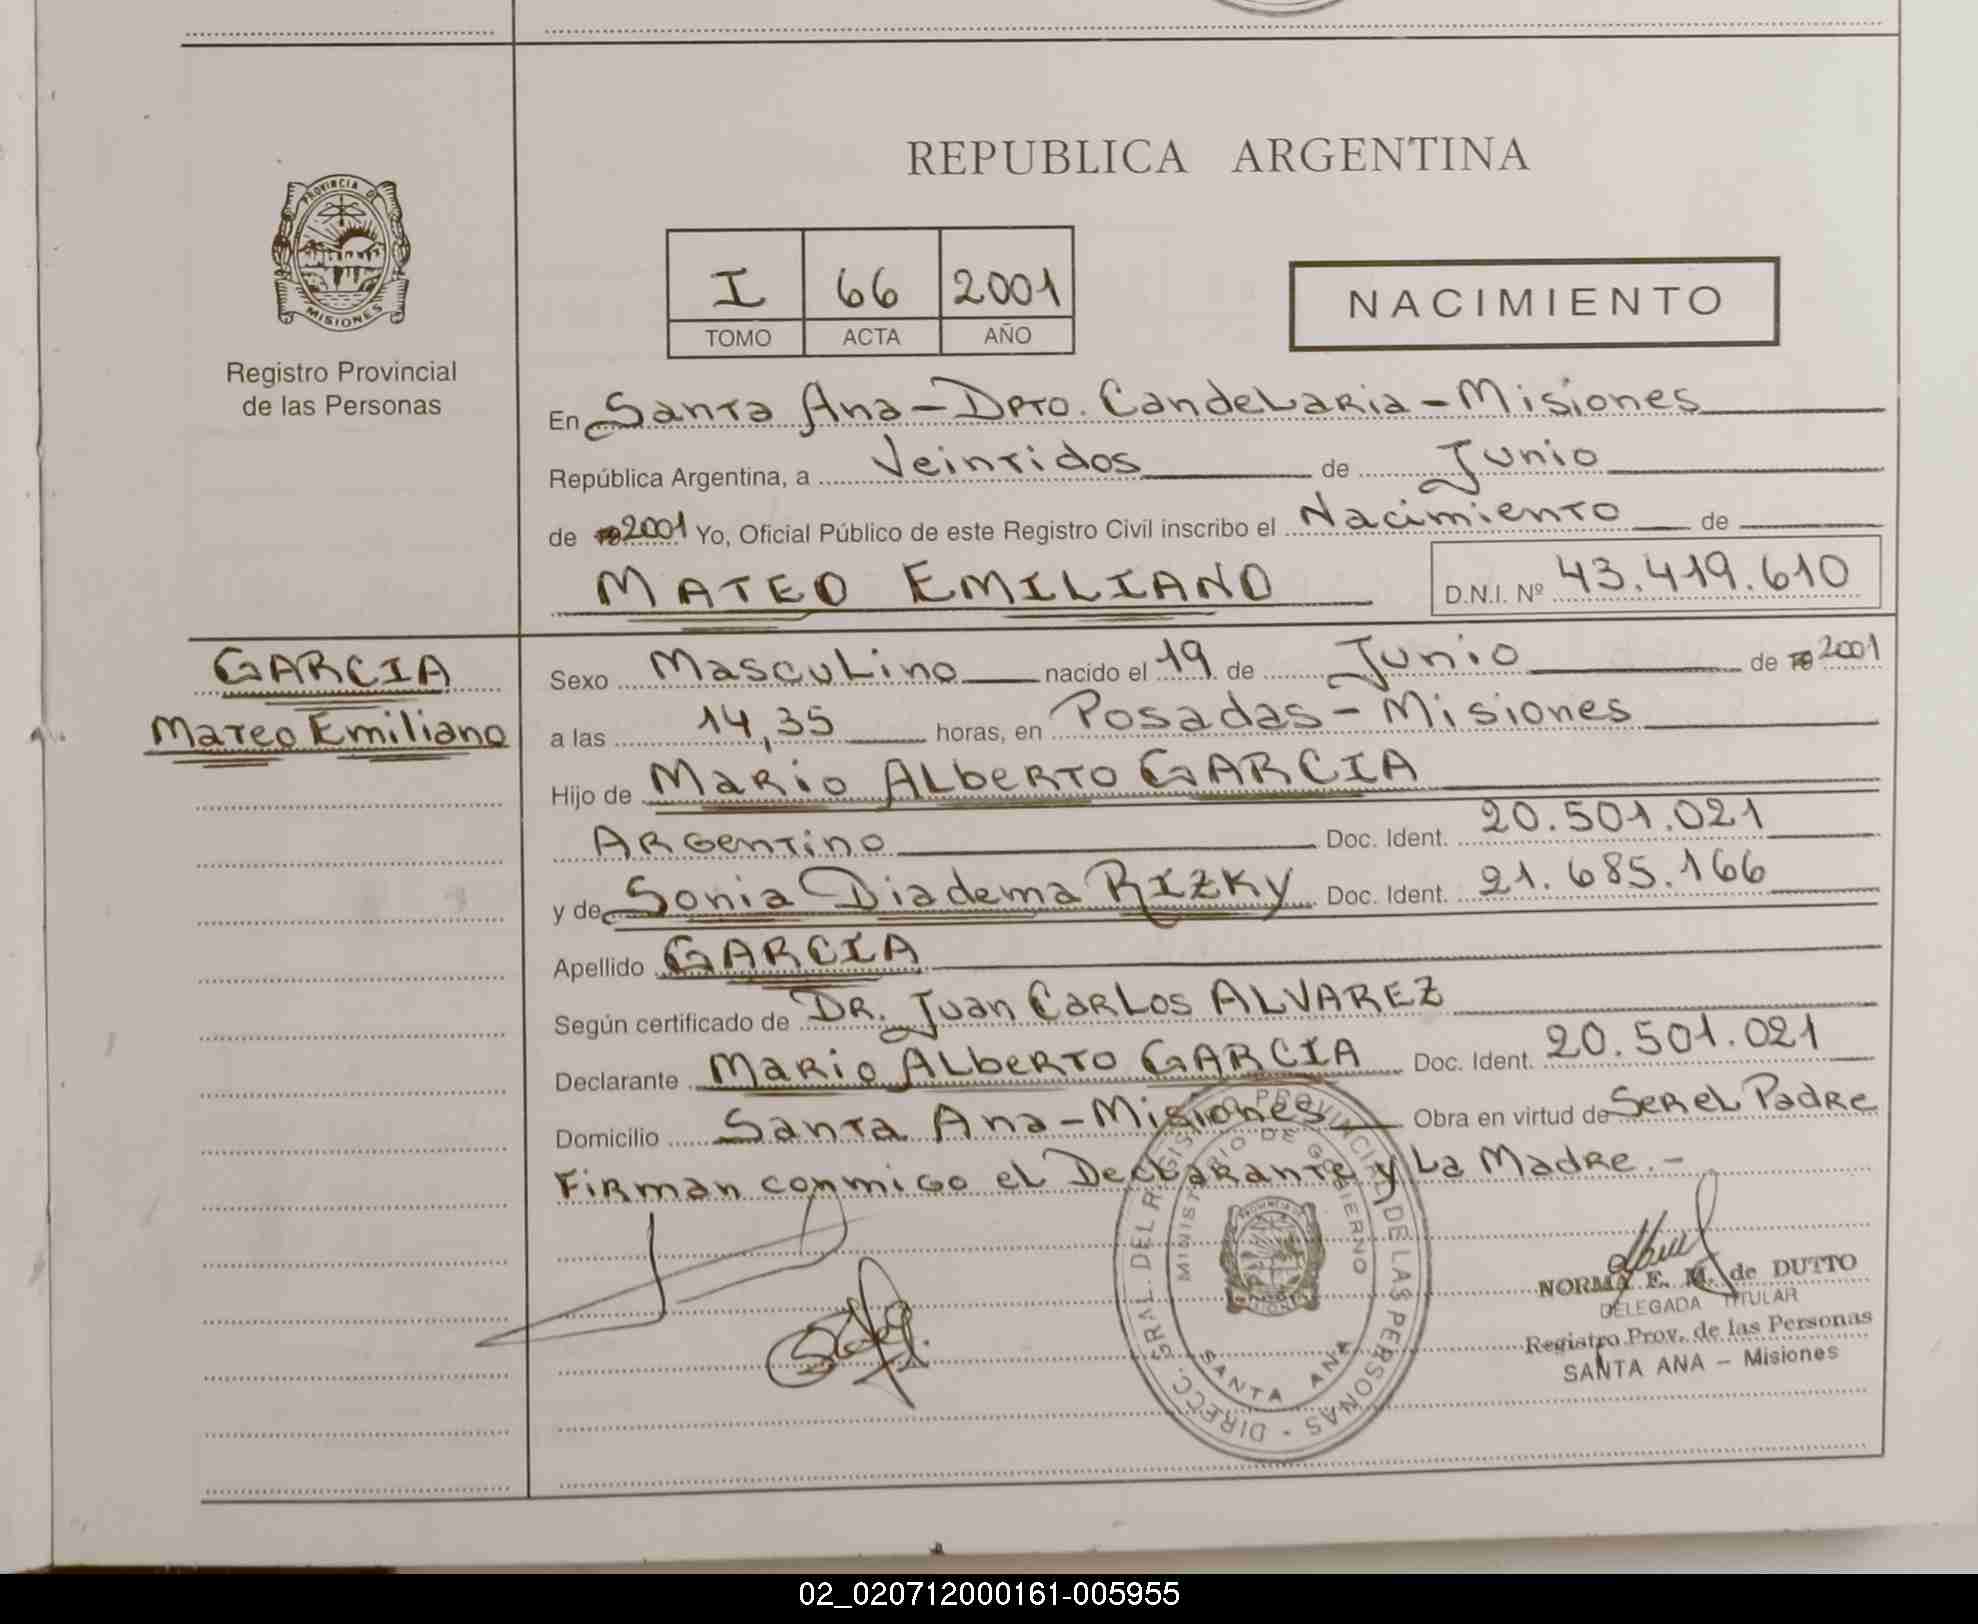 REPUBLICA ARGENTINA
PROVINCIA DE
MISIONES
Registro Provincial
de las Personas
I 66 2001
TOMO ACTA AÑO
NACIMIENTO
En Santa Ana - Dpto. Candelaria - Misiones
República Argentina, a Veintidos de Junio
de 2001 Yo, Oficial Público de este Registro Civil inscribo el Nacimiento de
MATEO EMILIANO D.N.I. Nº 43.419.610
GARCIA
Mateo Emiliano
Sexo Masculino nacido el 19 de Junio de 2001
a las 14,35 horas, en Posadas - Misiones
Hijo de Mario Alberto GARCIA
Argentino Doc. Ident. 20.501.021
y de Sonia Diadema RIZKY Doc. Ident. 21.685.166
Apellido GARCIA
Según certificado de DR. Juan Carlos ALVAREZ
Declarante Mario Alberto GARCIA Doc. Ident. 20.501.021
Domicilio Santa Ana - Misiones Obra en virtud de Ser el Padre
Firman conmigo el Declarante y La Madre. -
DIRECC. GRAL. DEL REGISTRO PROVINCIAL DE LAS PERSONAS -
MINISTERIO DE GOBIERNO
SANTA ANA
NORMA E. M. de DUTTO
DELEGADA TITULAR
Registro Prov. de las Personas
SANTA ANA - Misiones
02_020712000161-005955